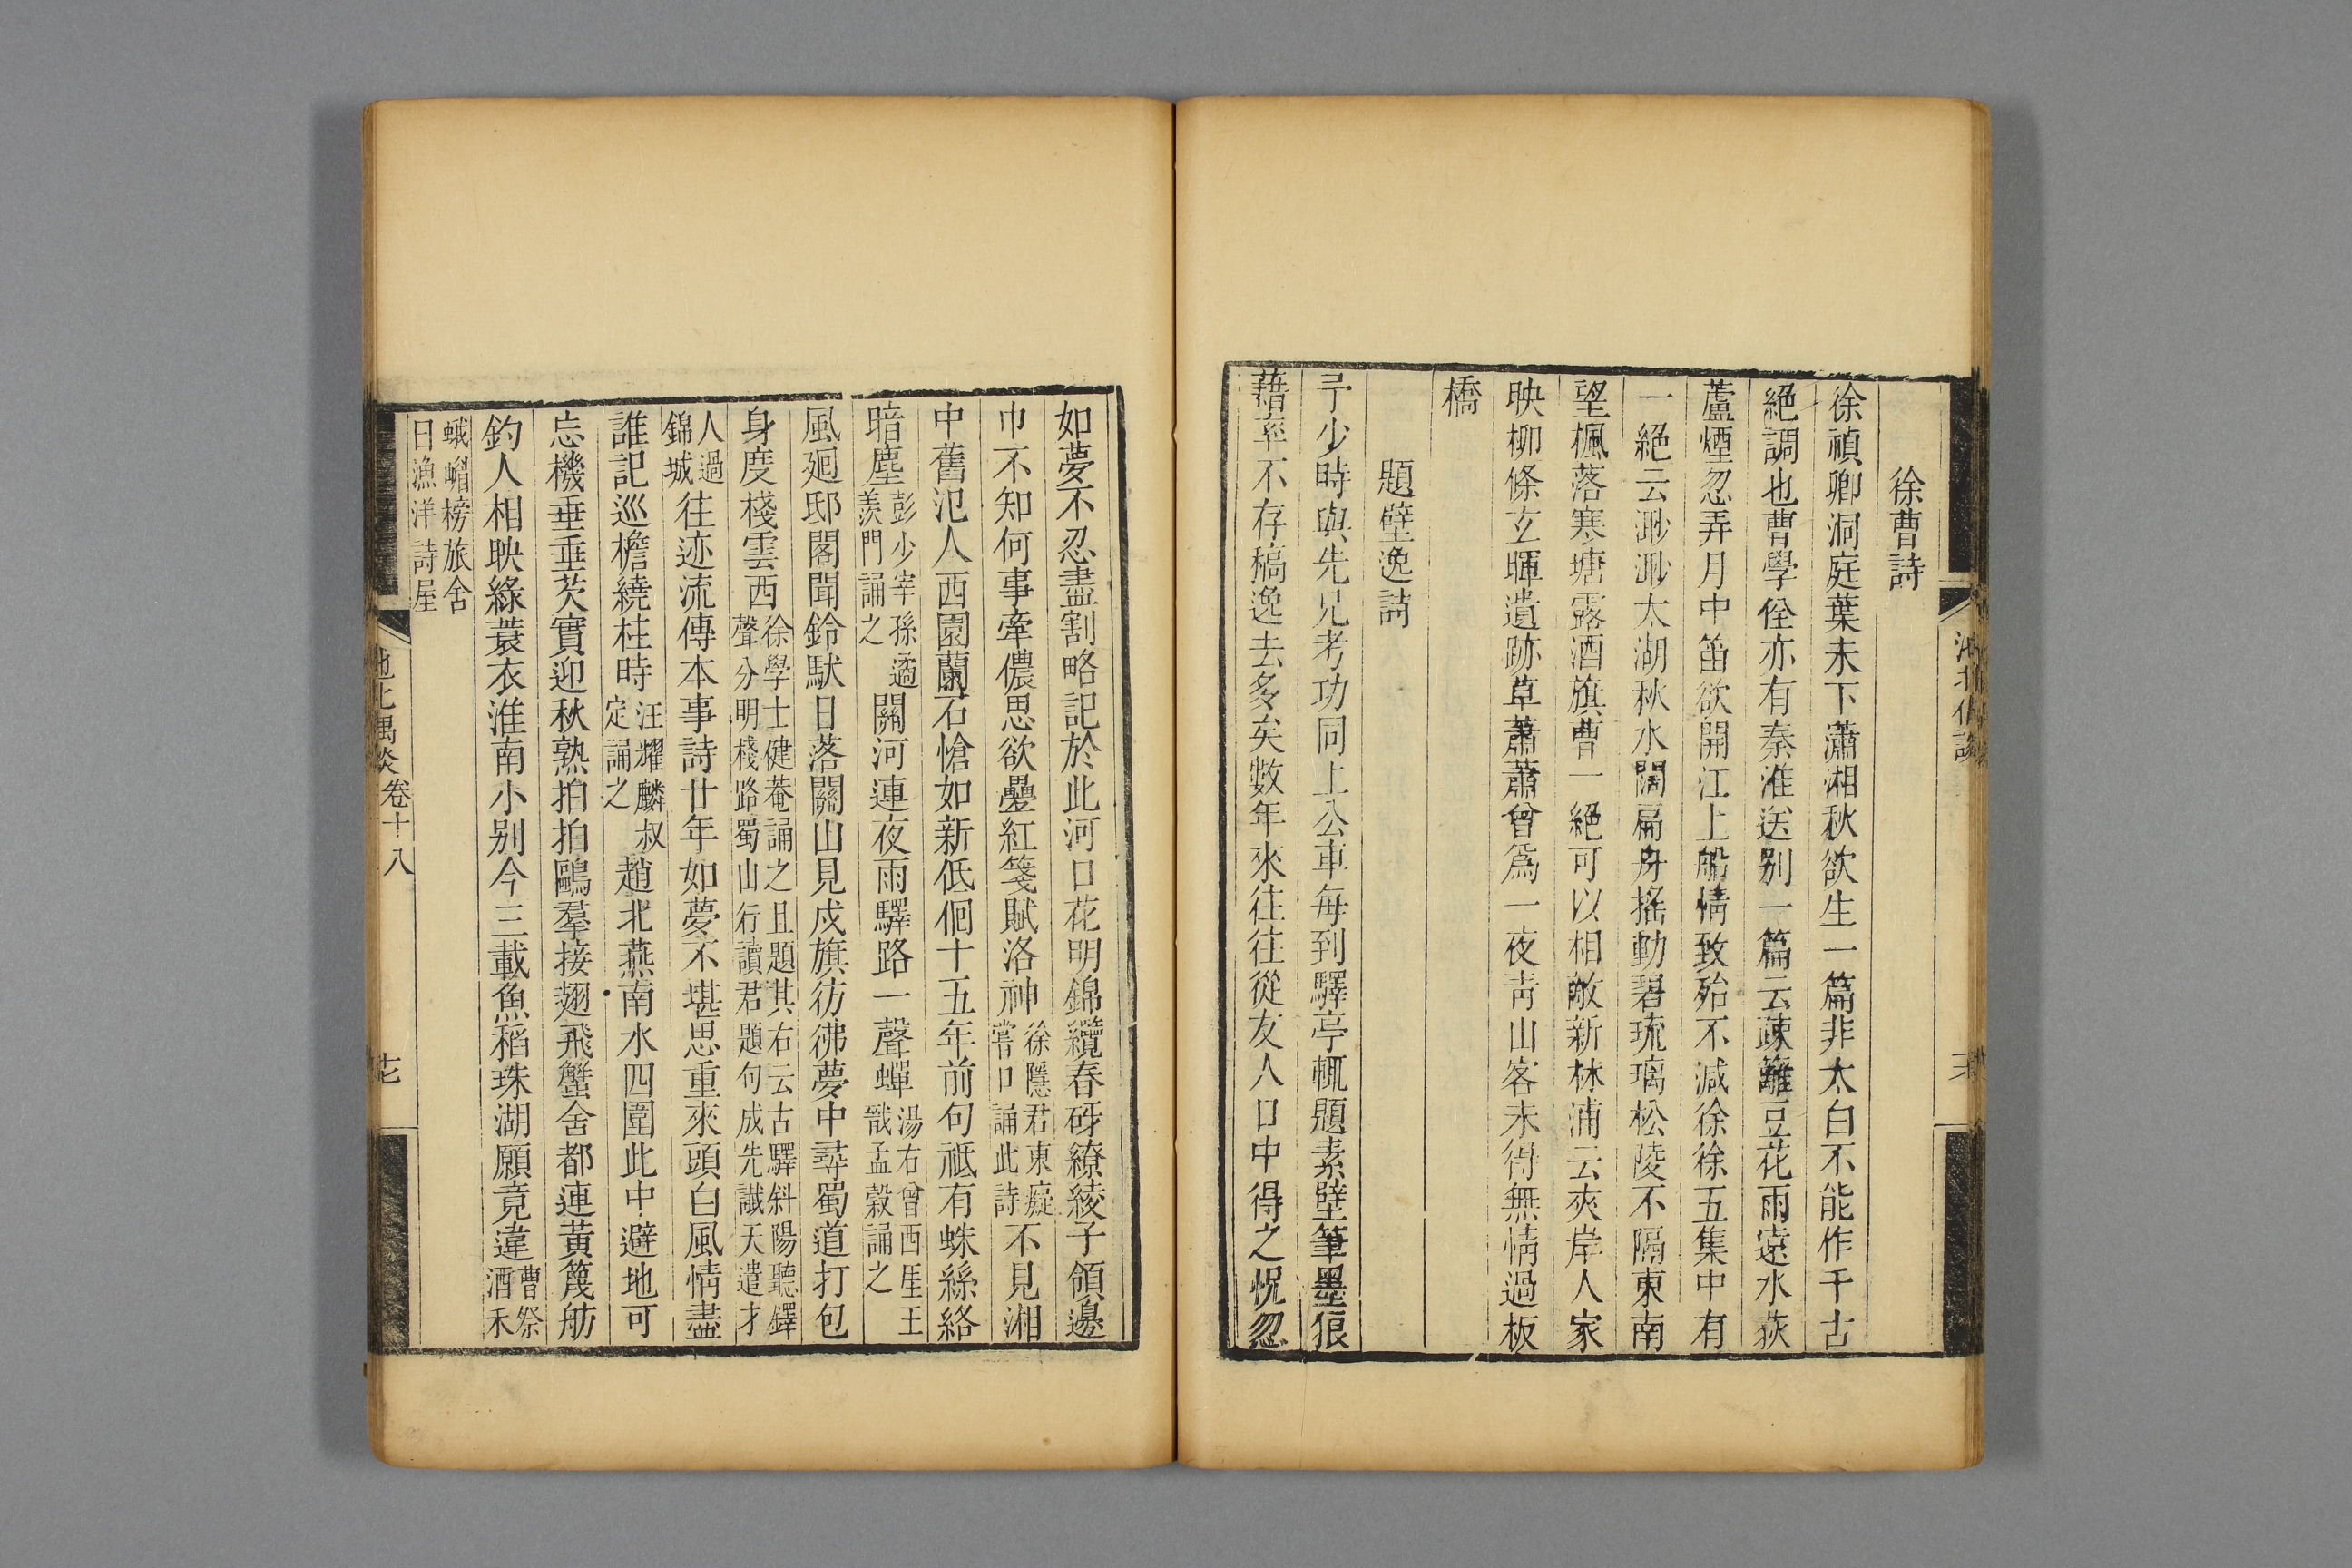 徐曹詩
徐禎卿洞庭葉未下瀟湘秋欲生一篇非太白不能作千古
絕調也曹學佺亦有秦淮送别一篇云疎籬豆花雨遠水荻
蘆煙忽弄月中笛欲開江上船情致殆不減徐徐五集中有
一絕云渺渺太湖秋水闊扁舟搖動碧琉璃松陵不隔東南
望楓落寒塘露酒旗曹一絕可以相敵新林浦云夾岸人家
映柳條玄暉遺跡草蕭蕭曾爲一夜靑山客未得無情過板
橋
題壁逸詩
予少時與先兄考功同上公車每到驛亭輒題素壁筆墨狼
藉率不存稿逸去多矣數年來往往從友人口中得之怳忽
如夢不忍盡割略記於此河口花明錦纜春砑繚綾子領邊
巾不知何事牽儂思欲疊紅箋賦洛神徐隱君東癡嘗口誦此詩不見湘
中舊氾人西園蘭石愴如新低徊十五年前句祗有蛛絲絡
暗塵彭少宰孫遹羨門誦之關河連夜雨驛路一聲蟬湯右曾西厓王戩孟穀誦之
風廻邸閣聞鈴馱日落關山見戍旗彷彿夢中尋蜀道打包
身度棧雲西徐學士健菴誦之且題其右云古驛斜陽聽鐸聲分明棧路蜀山行讀君題句成先讖天遣才
人過錦城往迹流傳本事詩廿年如夢不堪思重來頭白風情盡
誰記巡檐繞柱時汪耀麟叔定誦之趙北燕南水四圍此中避地可
忘機垂垂芡實迎秋熟拍拍鷗羣接翅飛蟹舍都連黃篾舫
釣人相映綠蓑衣淮南小别今三載魚稻珠湖願竟違曹祭酒禾
蛾嵋榜旅舍日漁洋詩屋
池北偶談 卷十八